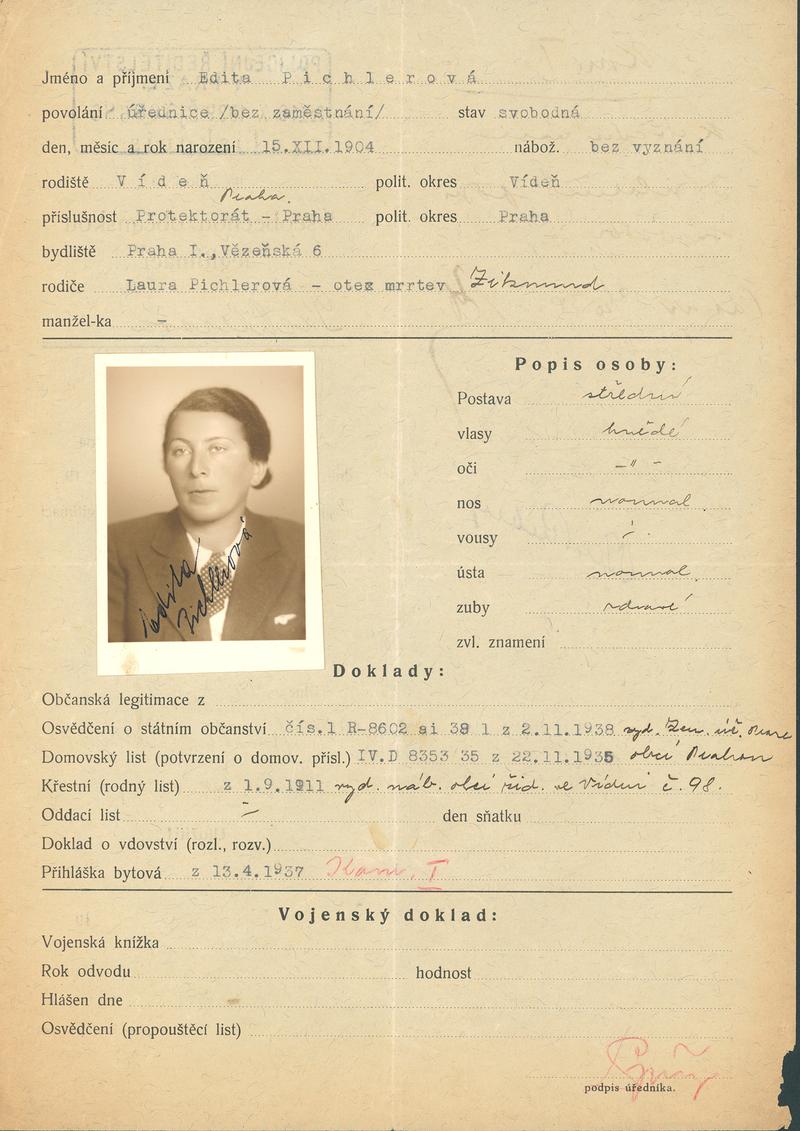 Jméno a příjmení Edita Pichlerová
povolání úřednice /bez zaměstnání/ stav svobodná
den, měsíc a rok narození 15.XII.1904 nábož. bez vyznání
rodiště Vídeň polit. okres Vídeň
Praha.
příslušnost Protektorát - Praha polit. okres Praha
bydliště Praha I.,Vězeňská 6
rodiče Laura Pichlerová - otec mrrtev Zikmund
manžel-ka -
Popis osoby:
Postava střední
vlasy hnědé
oči -"-
nos normal.
vousy -
ústa normal.
zuby zdravé
zvl. znamení
Edita
Pichlerová
Doklady:
Občanská legitimace z
Osvědčení o státním občanství čís.l R-8602 ai 38 1 z 2.11.1938 vyd. Zem. úř.
Domovský list (potvrzení o domov. přísl.) IV.D 8353 35 z 22.11.1935 obcí
Křestní (rodný list) z 1.9.1911 vyd. náb. obcí žid. ve Vídni č. 98.
Oddací list - den sňatku
Doklad o vdovství (rozl., rozv.)
Přihláška bytová z 13.4.1937 I
Vojenský doklad:
Vojenská knížka
Rok odvodu hodnost
Hlášen dne
Osvědčení (propouštěcí list)
podpis úředníka.